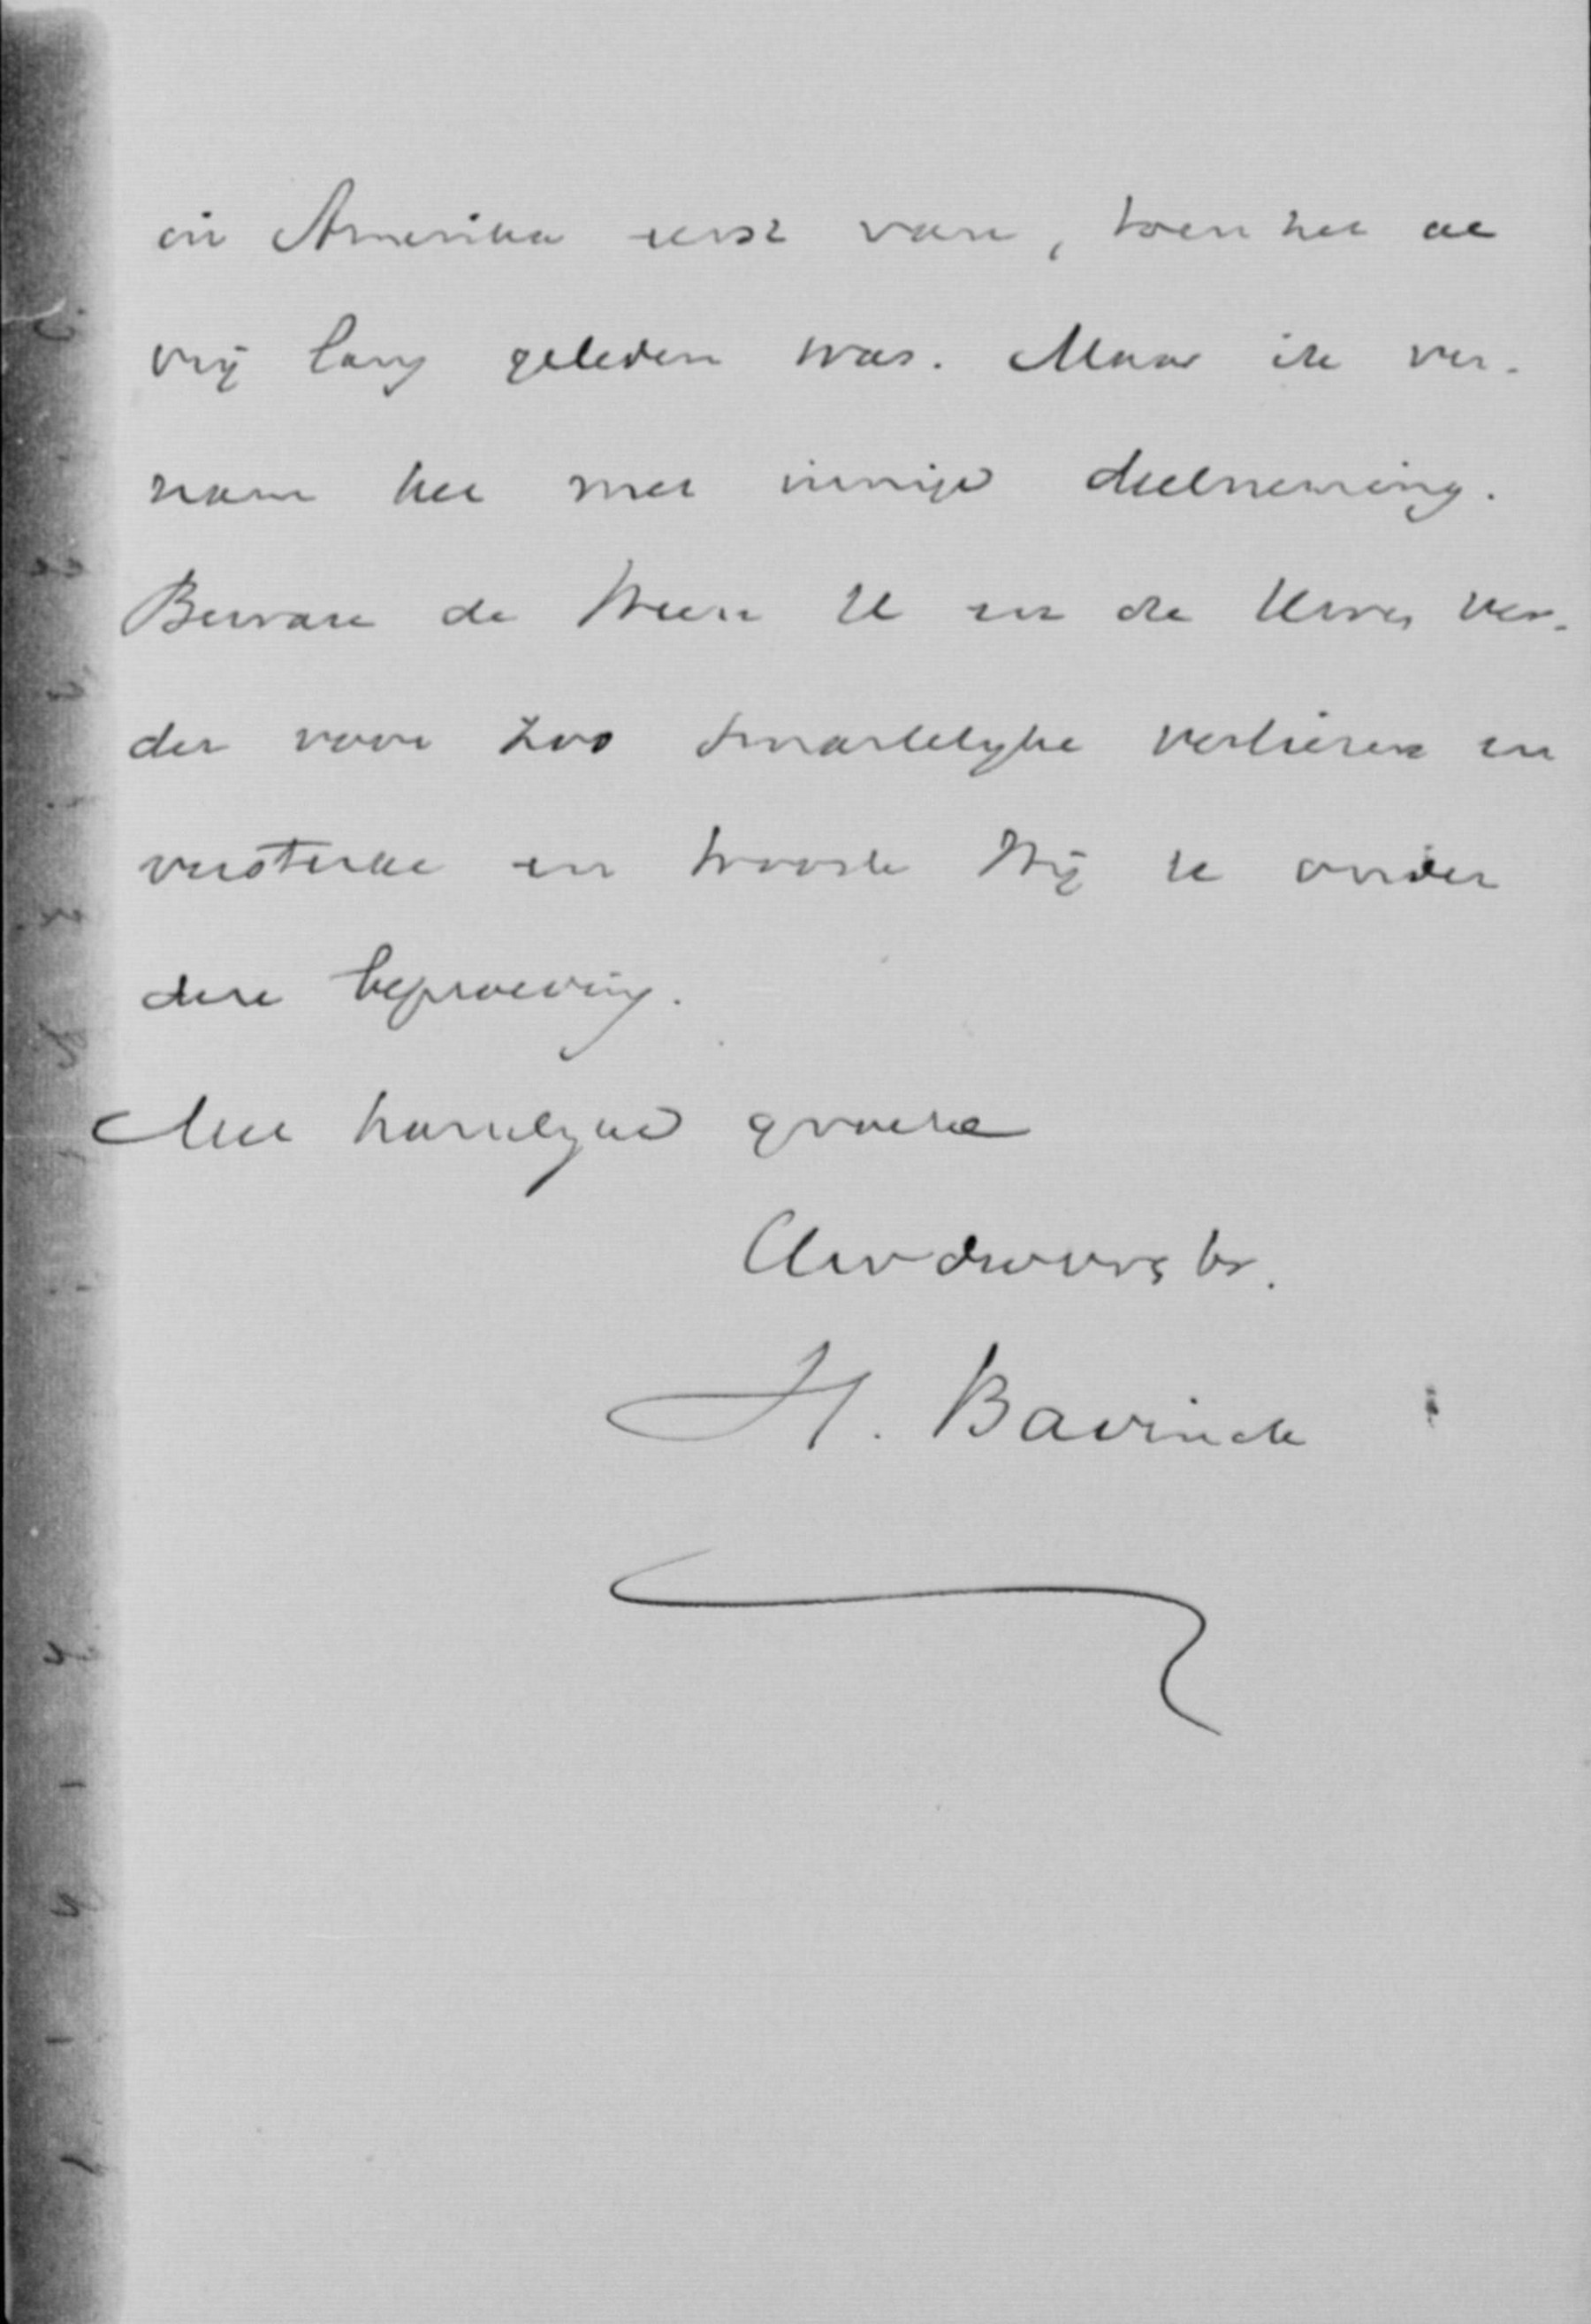 in Amerika eerst van, toen het al
vrij lang geleden was. Maar ik ver-
nam het met innige deelneming.
Beware de Heere U en de Uwen ver-
der voor zoo smartelijke verliezen en
versterke en trooste Hij U onder
deze beproeving.
Met hartelijke groete
Uw dw. br.
H. Bavinck